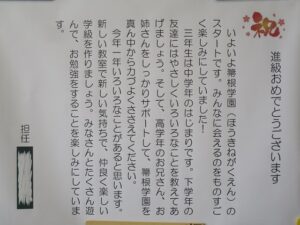 祝
進級おめでとうございます
いよいよ箒根学園（ほうきねがくえん）の
スタートです。みんなに会えるのをものすご
く楽しみにしていました！
三年生は中学年のはじまりです。下学年の
友達にはやさしくいろいろなことを教えてあ
げましょう。そして、高学年のお兄さん、お
姉さんをしっかりサポートして、箒根学園を
真ん中から力づよくささえてください。
今年一年いろいろなことがあると思います。
新しい教室で新しい気持ちで、仲良く楽しい
学級を作りましょう。みなさんとたくさん遊
んで、お勉強をすることを楽しみにしていま
す。
担任